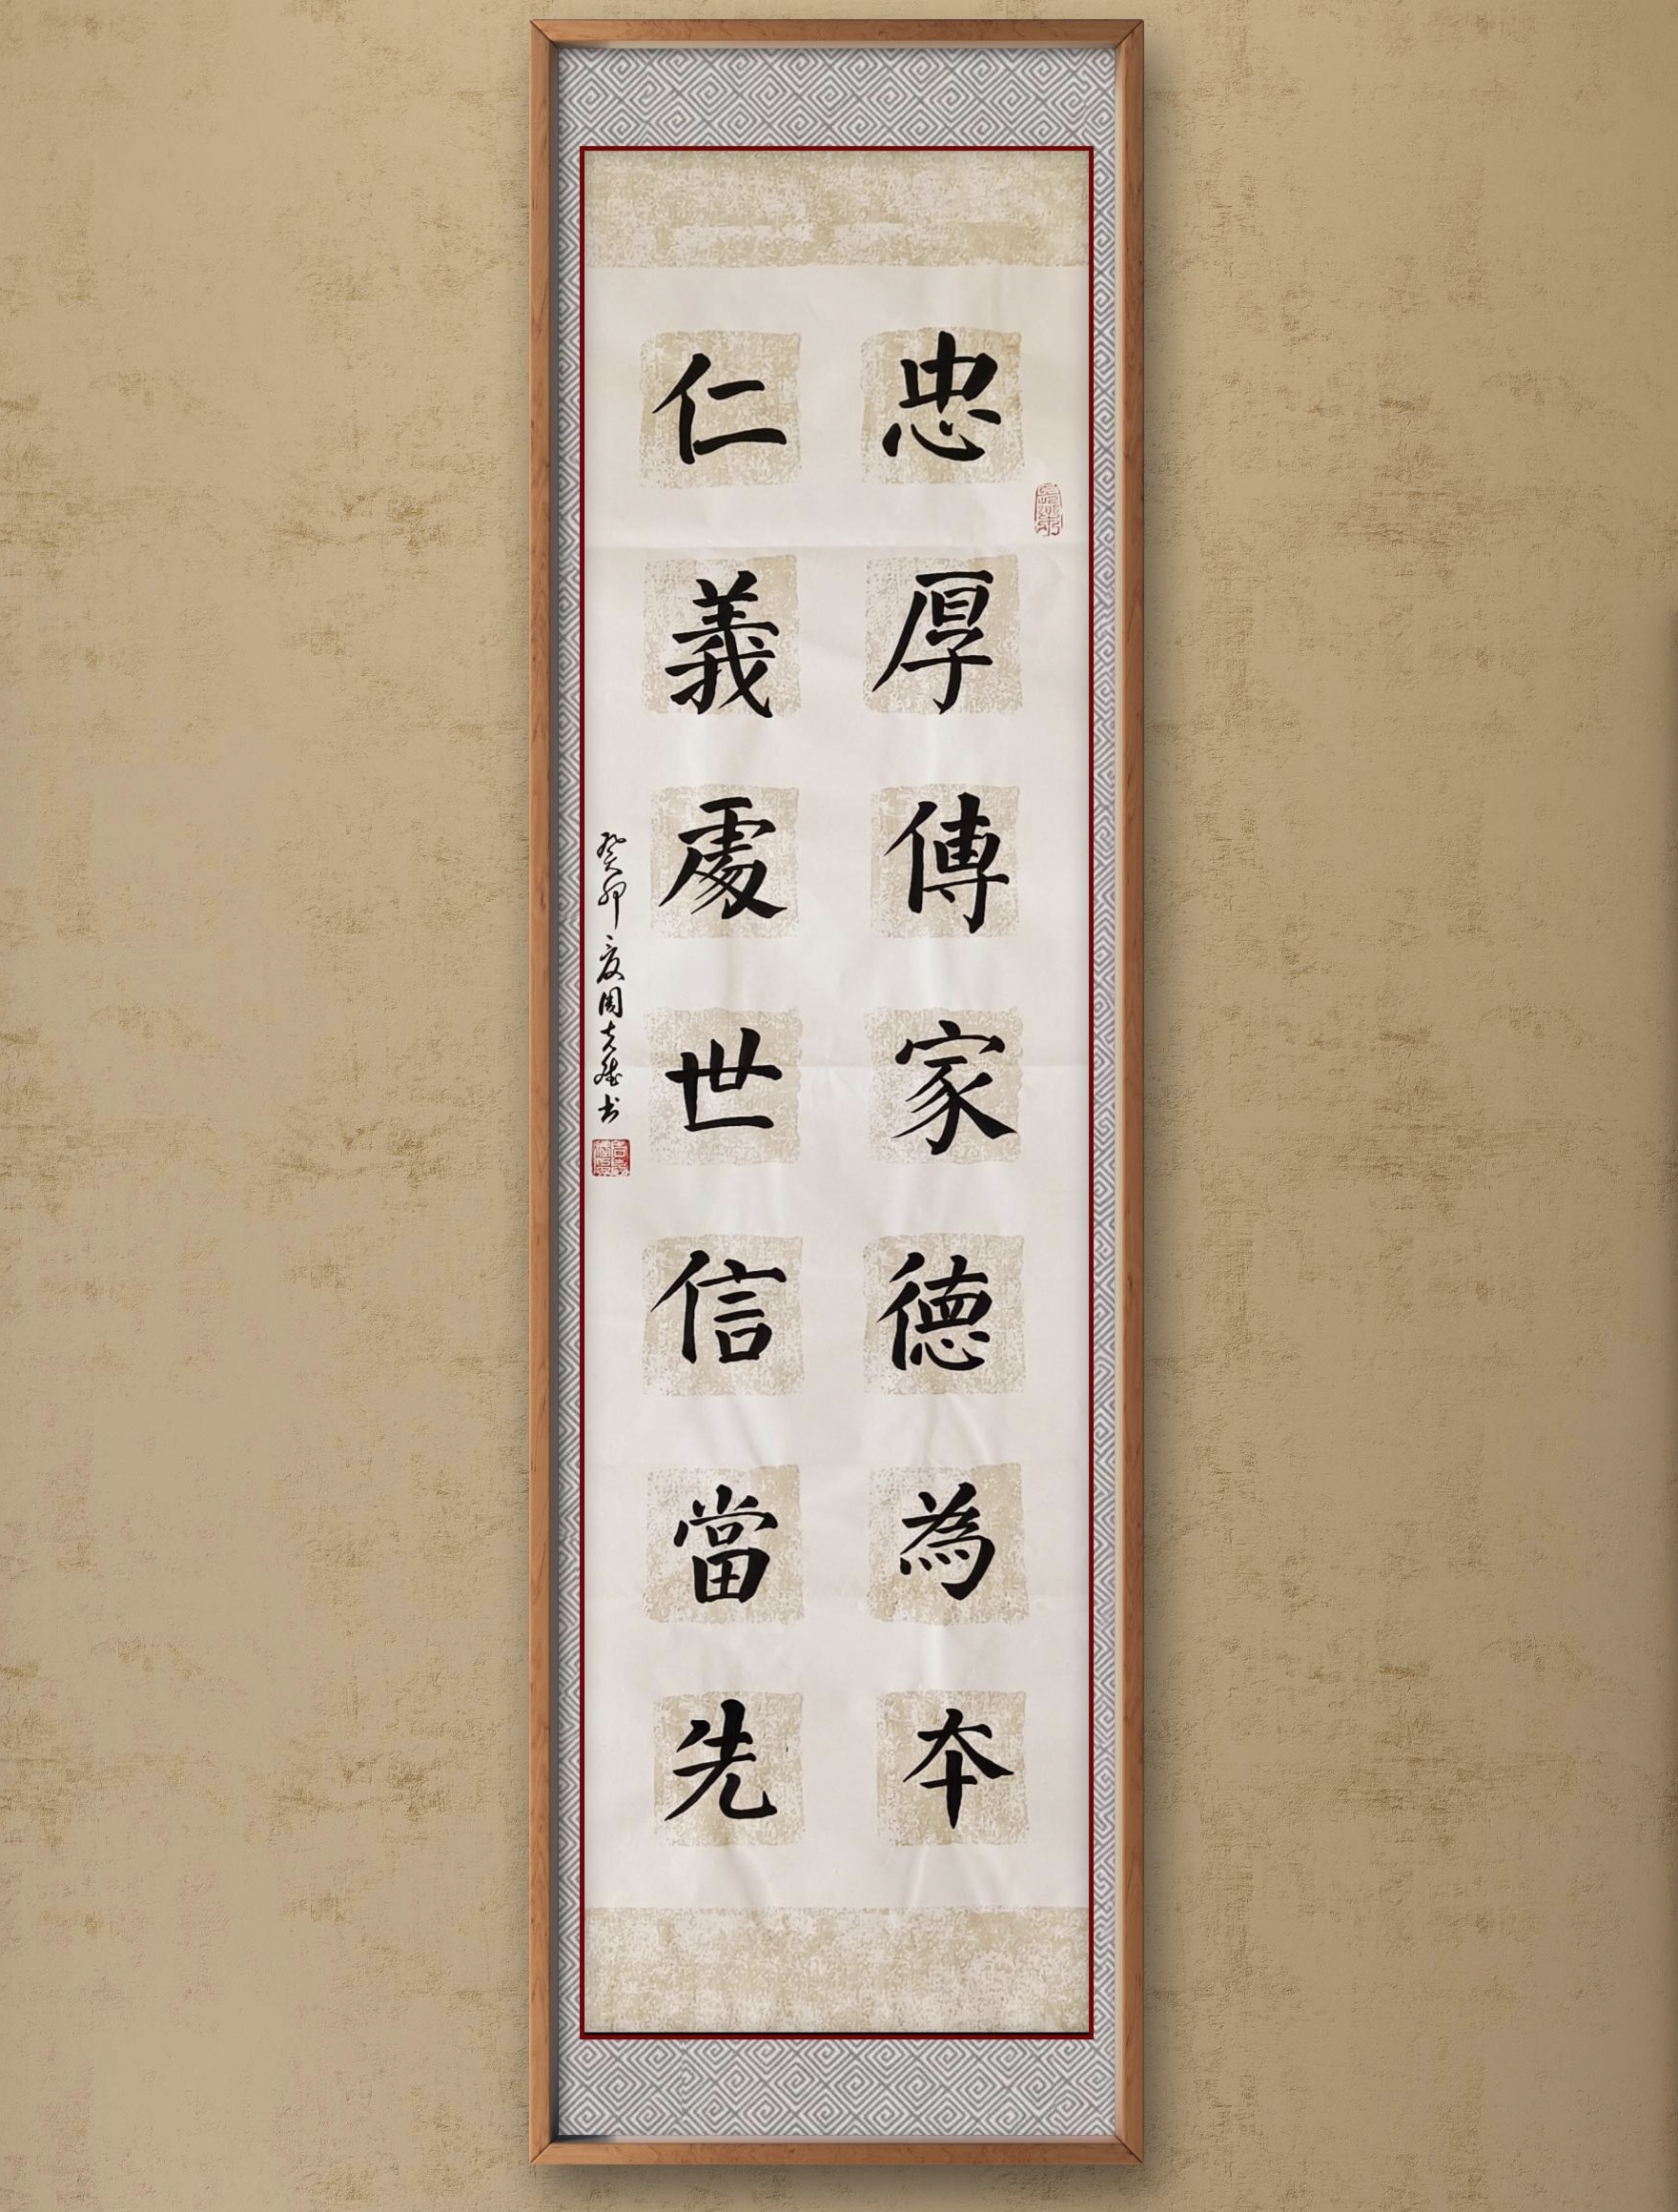 忠厚傳家德為本
仁義處世信當先
癸卯夏周克盛书